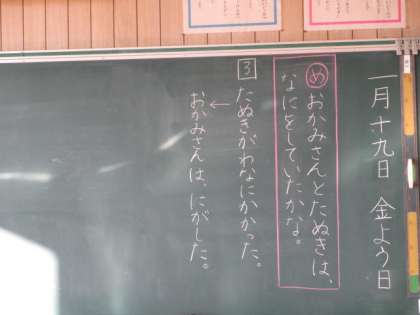 一月十九日 金よう日
め おかみさんとたぬきは、
なにをしていたかな。
3 たぬきがわなにかかった。
↓
おかみさんは、にがした。